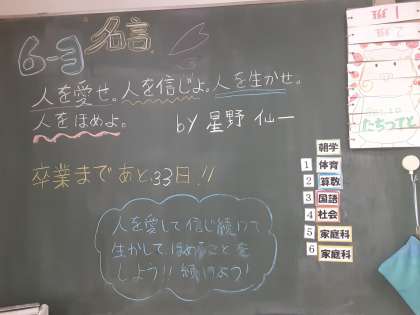 6-3 名言
人を愛せ。人を信じよ。人を生かせ。
人をほめよ。 by 星野 仙一
卒業まであと33日!!
人を愛して信じ続けて
生かして、ほめることを
しよう!! 続けよう!
朝学
1 体育
2 算数
3 国語
4 社会
5 家庭科
6 家庭科
1班
2班
たちつてと